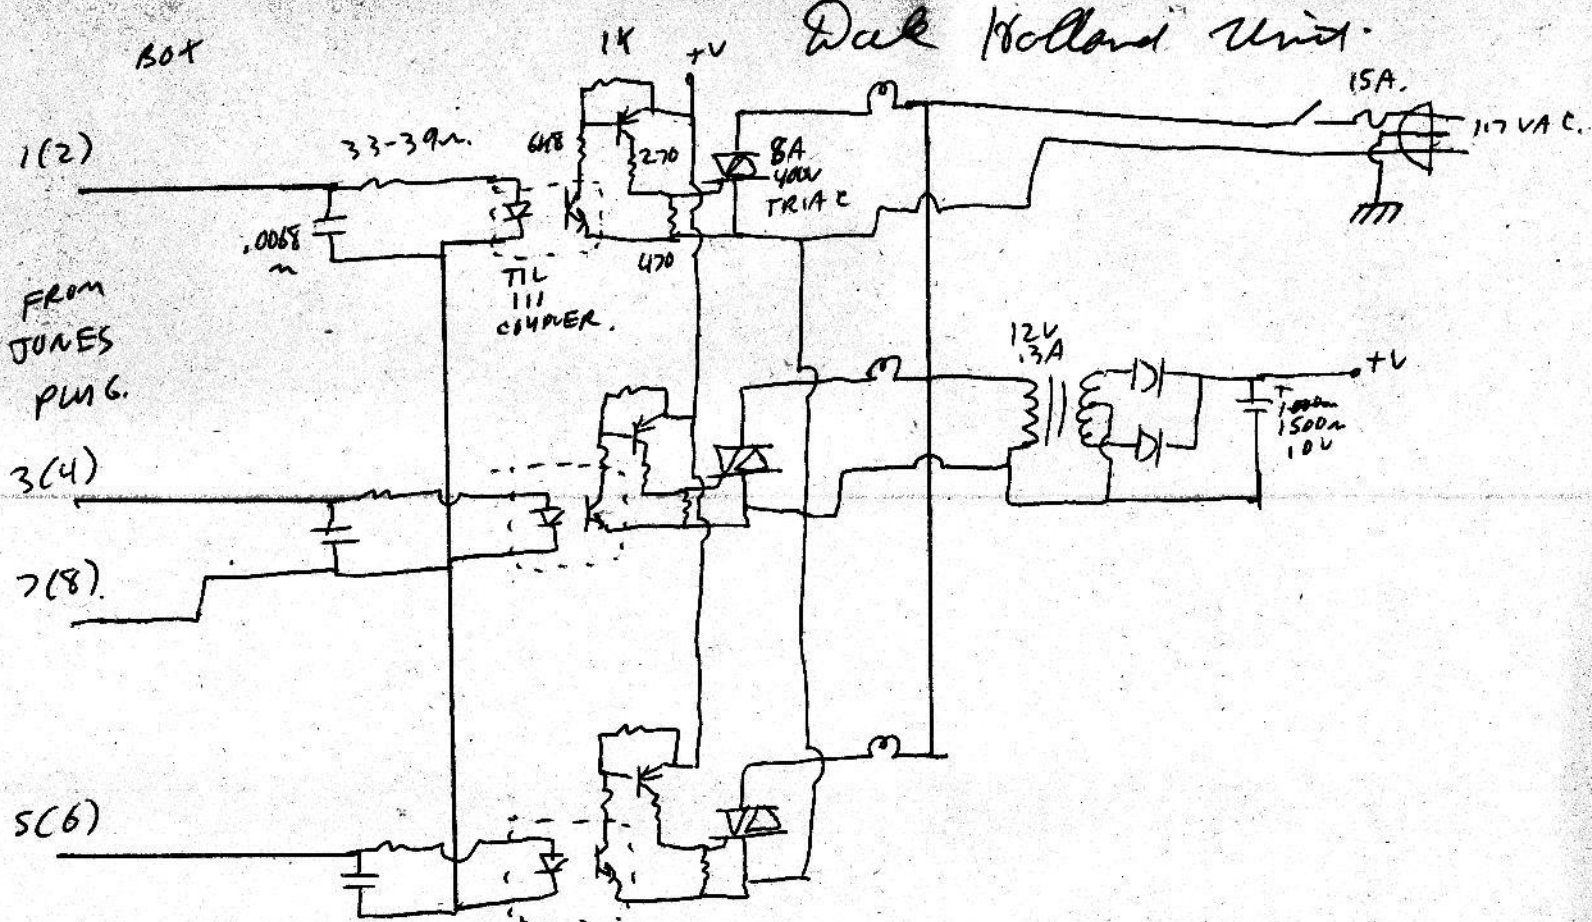 BOX
1K
+V
Dale Holland Unit.
15A.
117 VAC.
1(2)
33-39Ω.
270
8A
400V
TRIAC
.0068
470
TIL
111
COUPLER.
FROM
JONES
PLUG.
12V
.3A
+V
1500
10V
3(4)
7(8).
5(6)